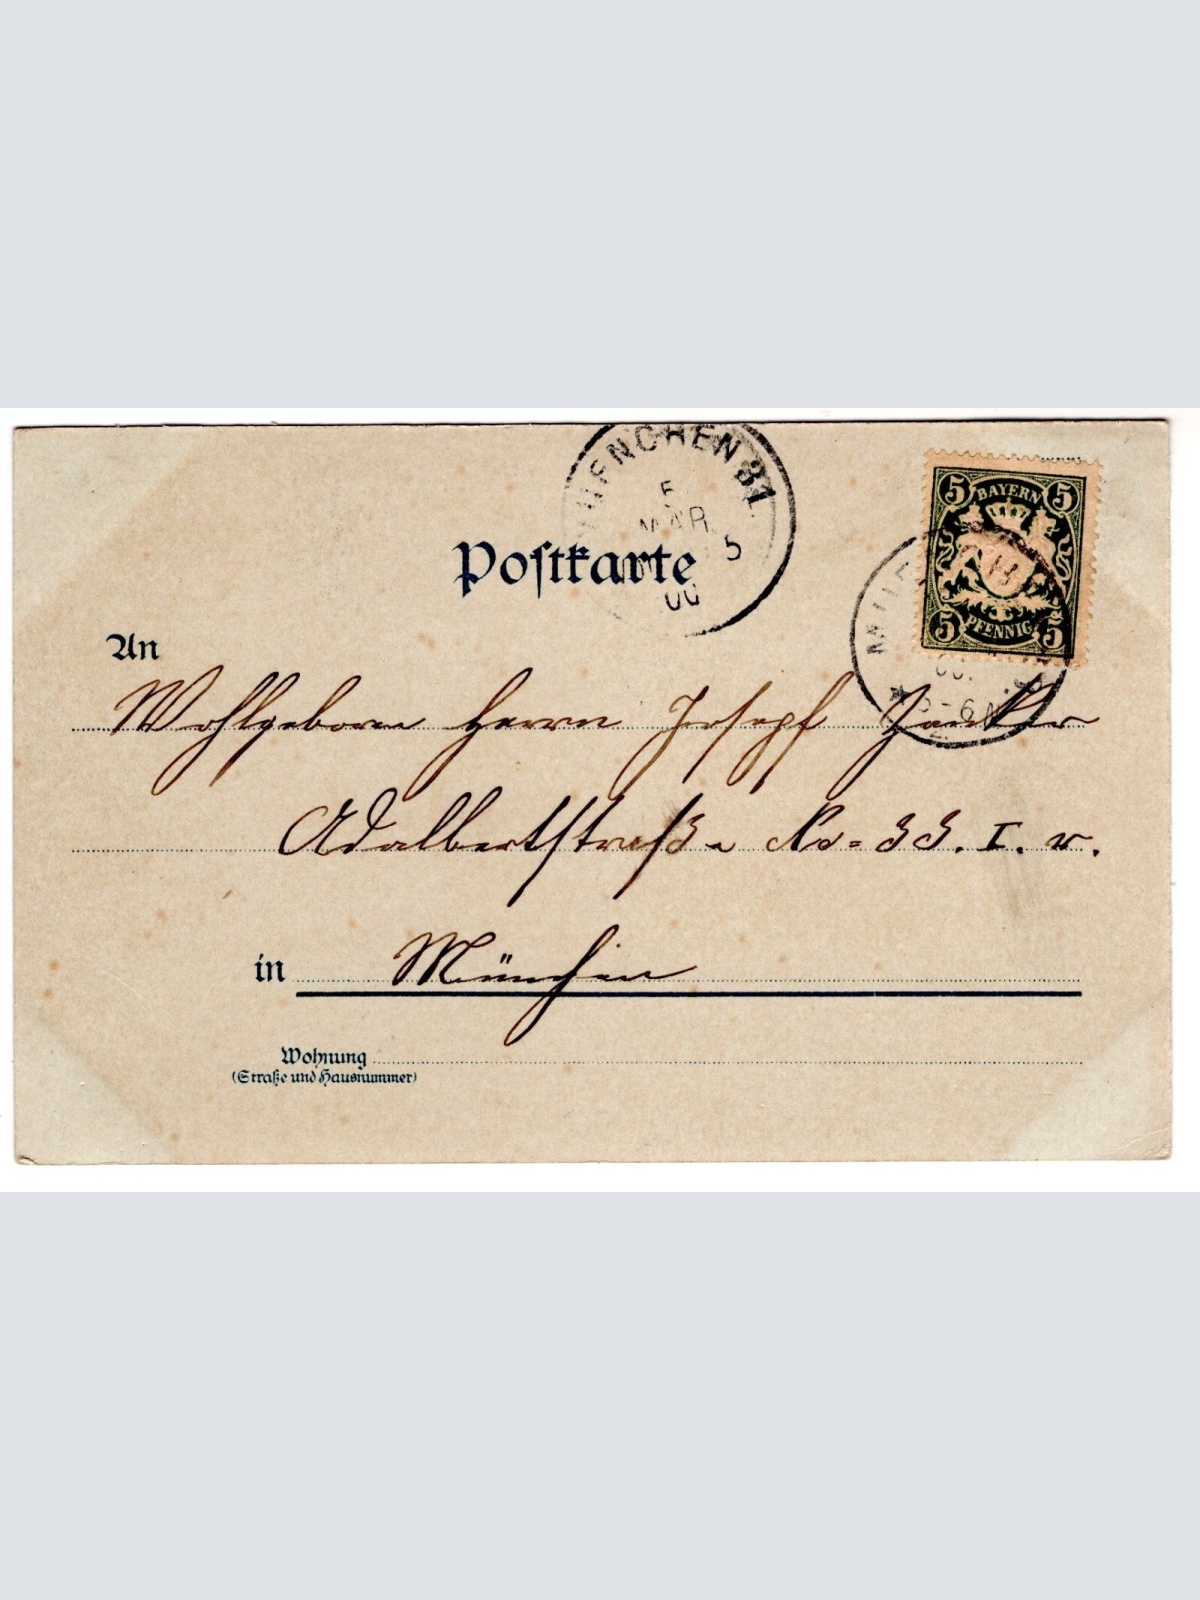 MUENCHEN 31.
5
MAR
5
00
Postkarte
5 BAYERN 5
5 PFENNIG 5
MUE
5-6 N
An
Wohlgeboren Herrn Josepf
Adalbertstraße No. 33. I. r.
in München
Wohnung
(Straße und Hausnummer)